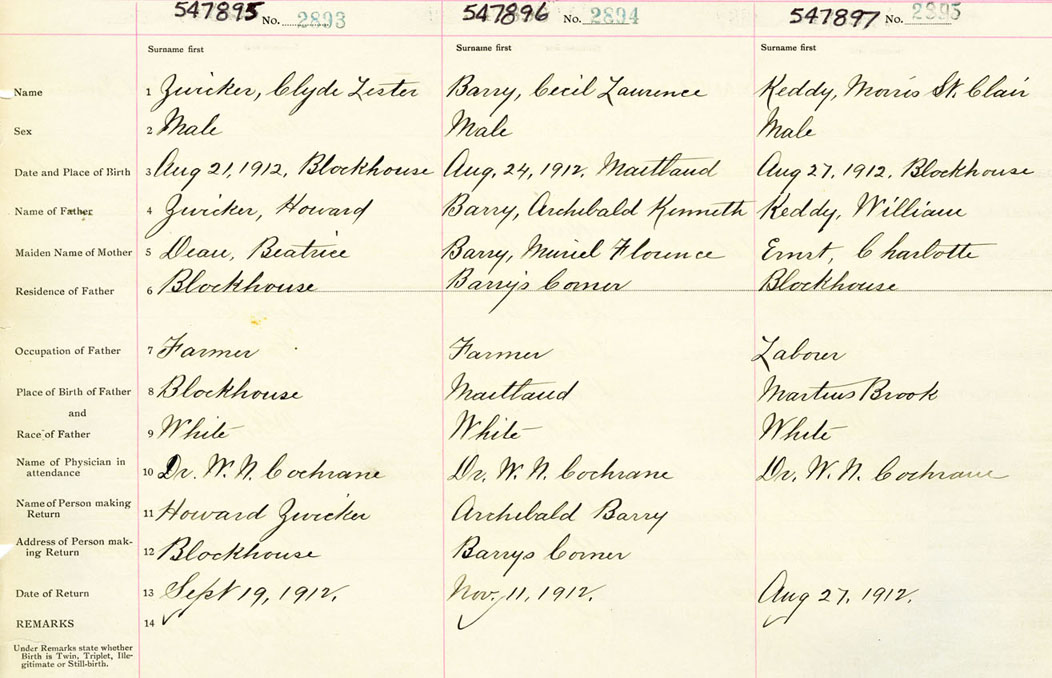 547895 No. 2893 547896 No. 2894 547897 No. 2895
Surname first Surname first Surname first
Name 1 Zwicker, Clyde Lester Barry, Cecil Laurence Keddy, Morris St. Clair
Sex 2 Male Male Male
Date and Place of Birth 3 Aug 21, 1912, Blockhouse Aug. 24, 1912. Maitland Aug 27, 1912. Blockhouse
Name of Father 4 Zwicker, Howard Barry, Archibald Kenneth Keddy, William
Maiden Name of Mother 5 Deau, Beatrice Barry, Muriel Florence Ernst, Charlotte
Residence of Father 6 Blockhouse Barry's Corner Blockhouse
Occupation of Father 7 Farmer Farmer Labourer
Place of Birth of Father 8 Blockhouse Maitland Martins Brook
and
Race of Father 9 White White White
Name of Physician in
attendance 10 Dr. W. N. Cochrane Dr. W. N. Cochrane Dr. W. N. Cochrane
Name of Person making
Return 11 Howard Zwicker Archibald Barry
Address of Person mak-
ing Return 12 Blockhouse Barrys Corner
Date of Return 13 Sept 19, 1912. Nov. 11, 1912. Aug 27, 1912.
REMARKS 14
Under Remarks state whether
Birth is Twin, Triplet, Ille-
gitimate or Still-birth.